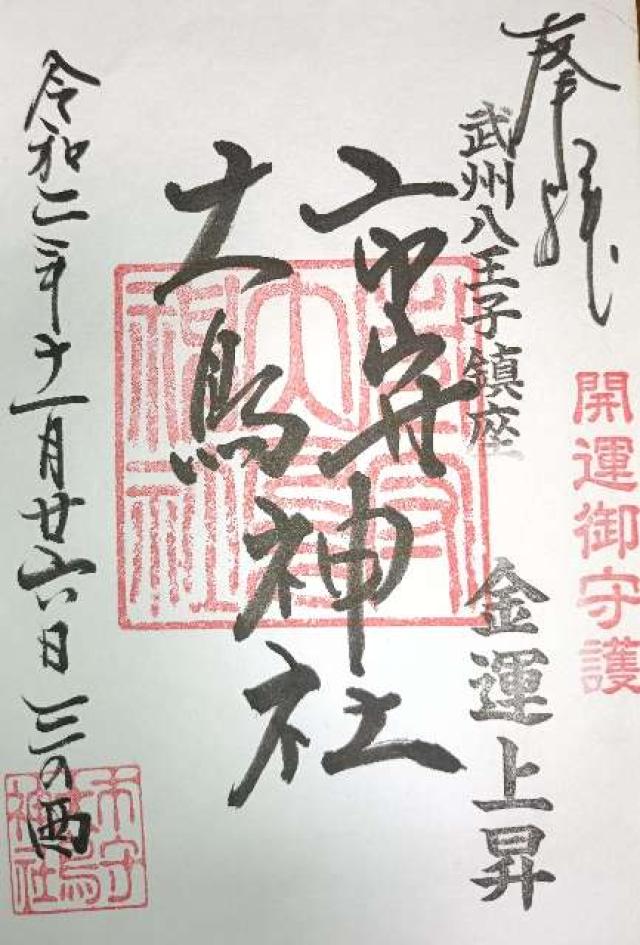 奉拝
開運御守護
武州八王子鎮座
金運上昇
市守
大鳥
神社
令和二年十一月廿六日 三の酉
市守
大鳥
神社